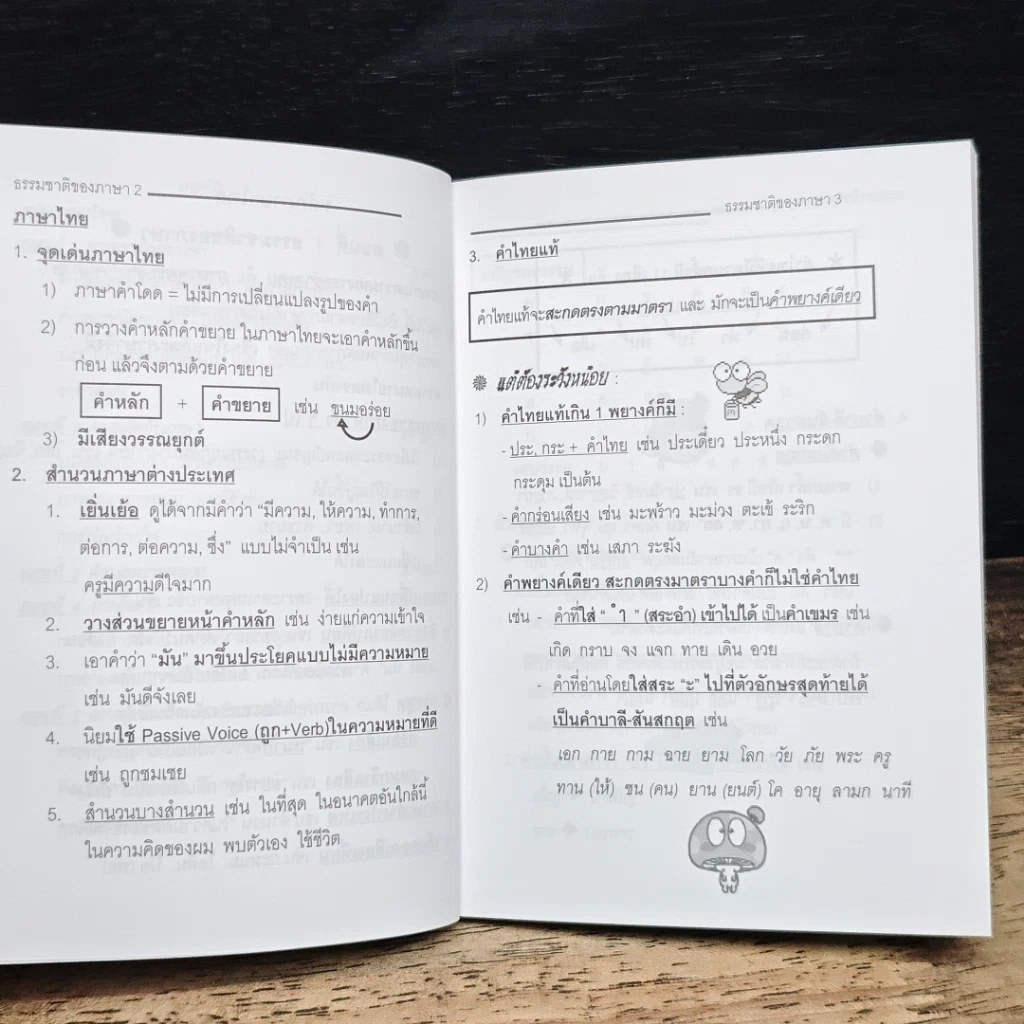 ธรรมชาติของภาษา 2
ภาษาไทย
1. จุดเด่นภาษาไทย
1) ภาษาคำโดด = ไม่มีการเปลี่ยนแปลงรูปของคำ
2) การวางคำหลักคำขยาย ในภาษาไทยจะเอาคำหลักขึ้น
ก่อน แล้วจึงตามด้วยคำขยาย
คำหลัก + คำขยาย เช่น ขนมอร่อย
3) มีเสียงวรรณยุกต์
2. สำนวนภาษาต่างประเทศ
1. เยิ่นเย้อ ดูได้จากมีคำว่า “มีความ, ให้ความ, ทำการ,
ต่อการ, ต่อความ, ซึ่ง” แบบไม่จำเป็น เช่น
ครูมีความดีใจมาก
2. วางส่วนขยายหน้าคำหลัก เช่น ง่ายแก่ความเข้าใจ
3. เอาคำว่า “มัน” มาขึ้นประโยคแบบไม่มีความหมาย
เช่น มันดีจังเลย
4. นิยมใช้ Passive Voice (ถูก+Verb)ในความหมายที่ดี
เช่น ถูกชมเชย
5. สำนวนบางสำนวน เช่น ในที่สุด ในอนาคตอันใกล้นี้
ในความคิดของผม พบตัวเอง ใช้ชีวิต
ธรรมชาติของภาษา 3
3. คำไทยแท้
คำไทยแท้จะสะกดตรงตามมาตรา และ มักจะเป็นคำพยางค์เดียว
แต่ต้องระวังหน่อย :
1) คำไทยแท้เกิน 1 พยางค์ก็มี :
- ประ, กระ + คำไทย เช่น ประเดี๋ยว ประหนึ่ง กระดก
กระดุม เป็นต้น
- คำกร่อนเสียง เช่น มะพร้าว มะม่วง ตะเข้ ระริก
- คำบางคำ เช่น เสภา ระฆัง
2) คำพยางค์เดียว สะกดตรงมาตราบางคำก็ไม่ใช่คำไทย
เช่น - คำที่ใส่ “ ำ ” (สระอำ) เข้าไปได้ เป็นคำเขมร เช่น
เกิด กราบ จง แจก ทาย เดิน อวย
- คำที่อ่านโดยใส่สระ “ะ” ไปที่ตัวอักษรสุดท้ายได้
เป็นคำบาลี-สันสกฤต เช่น
เอก กาย กาม ฉาย ยาม โลก วัย ภัย พระ ครู
ทาน (ให้) ชน (คน) ยาน (ยนต์) โค อายุ ลามก นาที